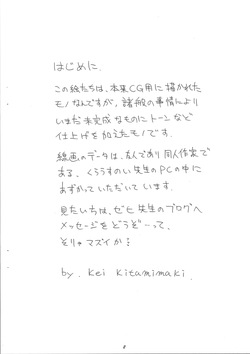 はじめに.
この絵たちは、本来CG用に描かれた
モノなんですが、諸般の事情により
いまだ未完成なものにトーンなど
仕上げを加えたモノです.
線画のデータは、友人であり同人作家で
ある、くろうすのい先生のPCの中に
あずかっていただいています.
見たいちは、ゼヒ先生のブログへ
メッセージをどうぞ…って、
そりゃマズイか!
by. Kei Kitamimaki.